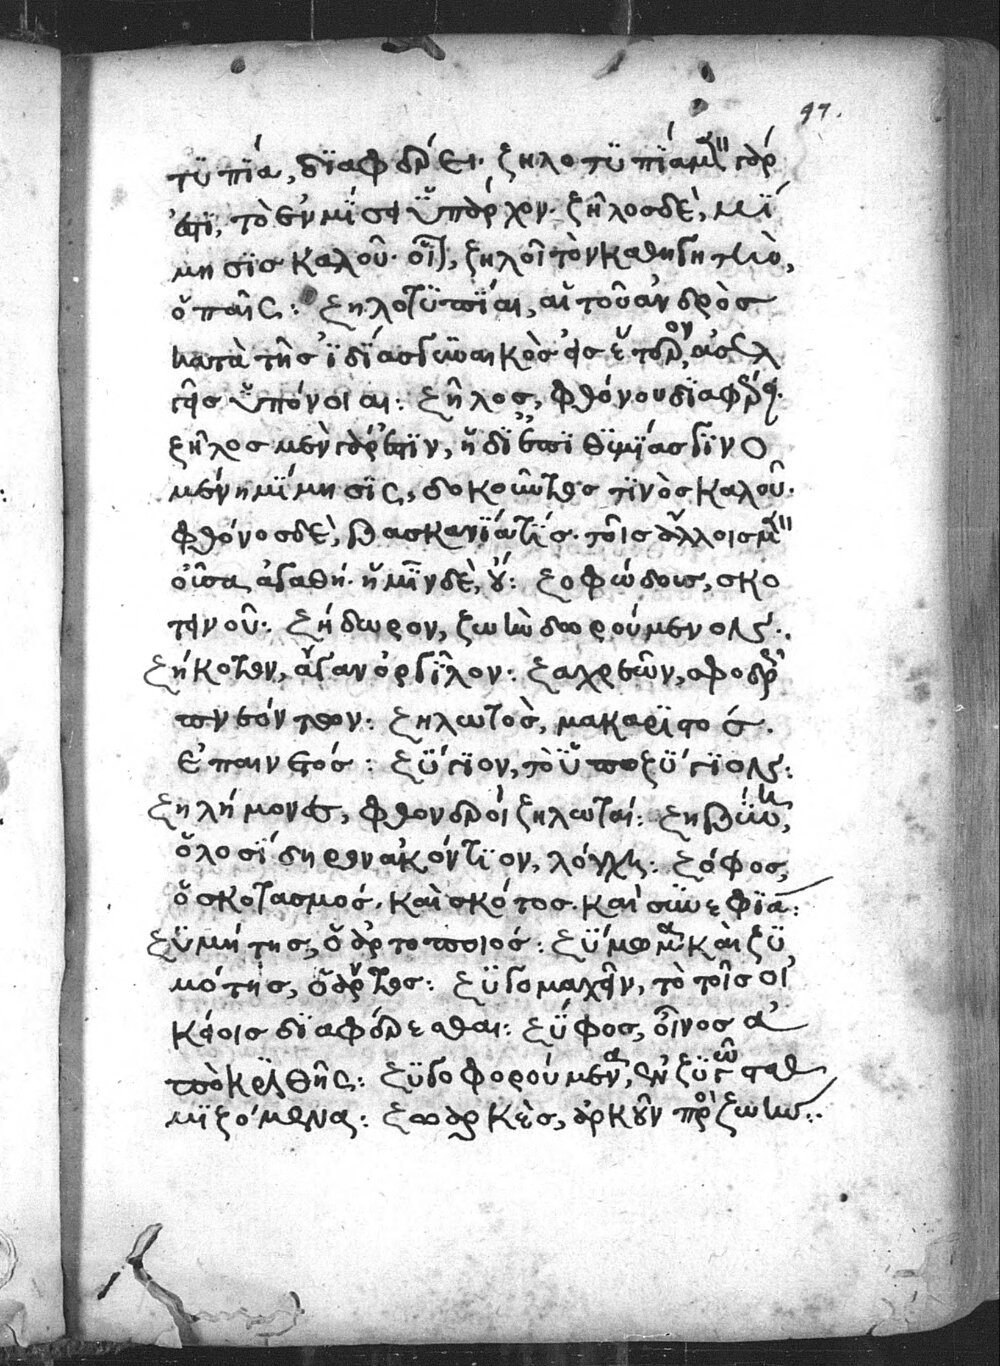 97.
τϋπία, διαφέρει· ζηλοτϋπία μὲν γάρ
ἐστι, τὸ ἐν μίσει ὑπάρχον· ζῆλος δὲ, μί
μησις καλοῦ· οἷον, ζηλοῖ τὸν καθηγητὴν,
ὁ παῖς: ζηλοτϋπίαι, αἱ τοῦ ἀνδρὸς
κατὰ τῆς ἰδίας γυναικὸς
ὑπόνοιαι: ζῆλος, φθόνου διαφέρει·
ζῆλος μὲν γάρ ἐστιν, ἡ δι' ἐπιθυμίας γινο
μένη μίμησις, δοκοῦντος τινὸς καλοῦ·
φθόνος δὲ, βασκανία τίς· τοῖς ἄλλοις μὲν
οὖσα ἀγαθή· ἡμῖν δὲ, οὔ: ζοφώδους, σκο
τεινοῦ: ζήδωρον, ζωὴν δωρούμενον:
ζήκοτον, ἄγαν ὀργίλον: ζαχρειῶν, σφοδρ
ζηλωτὸς, μακάριστος.
ἐπαινετός: ζύγιον, τὸ ὑποζύγιον:
ζηλήμονες, φθονεροὶ ζηλωταί: ζηβύνη,
ὁλοσίδηρον ἀκόντιον, λόγχη: ζόφος,
ὁ σκοτασμός· καὶ σκότος· καὶ συννεφία:
ζυμήτης, ὁ ἀρτοποιός: ζυμώματα καὶ ζυ
μότης, ὁ ἄρτος: ζυγομαχεῖν, τὸ τοῖς οἰ
κείοις διαφέρεσθαι: ζύφος, οἶνος ἀ
πὸ κριθῆς: ζυγοφορούμενα, ἐν ζυγῷ σταθ
μιζόμενα: ζωαρκὲς, ἀρκοῦν πρὸς ζωήν: